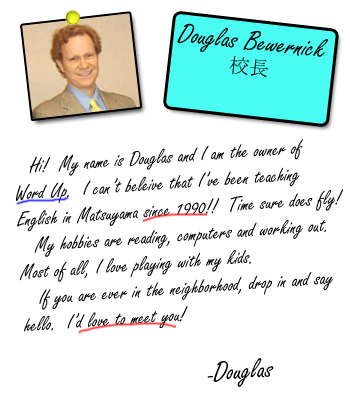 Douglas Bewernick
校長
Hi! My name is Douglas and I am the owner of
Word Up. I can't beleive that I've been teaching
English in Matsuyama since 1990!! Time sure does fly!
My hobbies are reading, computers and working out.
Most of all, I love playing with my kids.
If you are ever in the neighborhood, drop in and say
hello. I'd love to meet you!
-Douglas